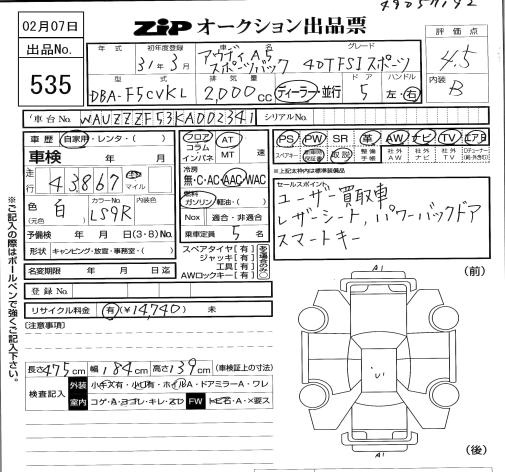 02月07日
ZIP オークション出品票
出品No.
535
年式
初年度登録
31年3月
車名
アウディ A5
スポーツバック
グレード
40TFSIスポーツ
評価点
4.5
内装
B
型式
DBA-F5CVKL
排気量
2,000cc
ディーラー・並行
ドア
5
ハンドル
左・右
車台No.
WAUZZZF53KA002341
シリアルNo.
車歴
自家用・レンタ・( )
車検 年 月
走行
43,867
マイル
色
(元色)
白
カラーNo.
LS9R
内装色
予備検 年 月 日(3・8)No.
形状
キャンピング・放宣・事務室・( )
名変期限 年 月 日迄
フロア
コラム
インパネ
AT
MT
速
冷房
無・C・AC・AAC・WAC
燃料
ガソリン・軽油・( )
Nox 適合・非適合
乗車定員 5 名
スペアタイヤ[有]
ジャッキ[有]
工具[有]
AWロックキー[有]
ある場合のみ○
PS PW SR 革 AW ナビ TV エアB
スペアキー
取説
整備手帳
社外AW
社外ナビ
社外TV
※上記太枠内は標準装備品
セールスポイント
ユーザー買取車
レザーシート, パワーバックドア
スマートキー
登録No.
リサイクル料金 有(¥14,740) 未
[注意事項]
長さ475cm 幅184cm 高さ139cm (車検証上の寸法)
検査記入
外装
小キズ有・小凹有・ホイルA・ドアミラーA・ワレ
室内
コゲ・A・ヨゴレ・キレ・スレ
FW
トビ石・A・X要ス
(前)
A1
A1
(後)
※ご記入の際はボールペンで強くご記入下さい。